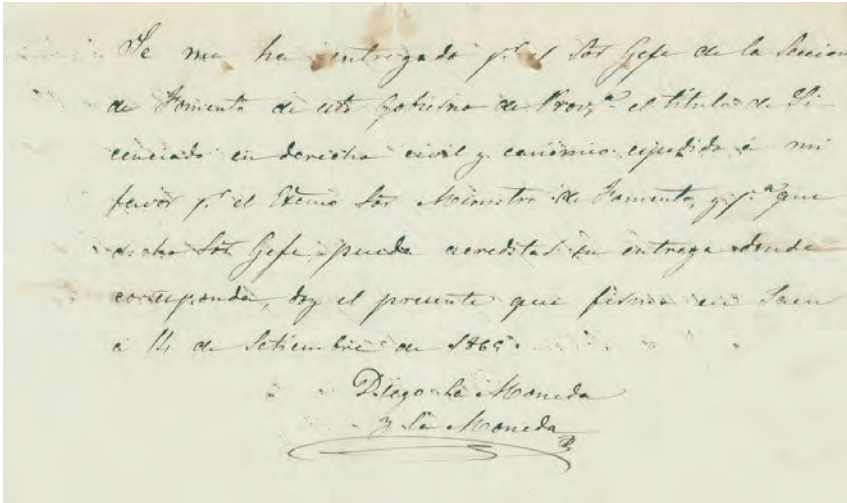 Se me ha entregado pr. el Sor Gefe de la Seccion
de Fomento de este Gobierno de Provª. el título de Li-
cenciado en derecho civil y canónico espedido á mi
favor pr. el Excmo Sor Ministro de Fomento, y pª. que
dicho Sor Gefe pueda acreditar su entrega donde
corresponda, doy el presente que firmo en Jaen
á 14 de Setiembre de 1865.
Diego La Moneda
y la Moneda